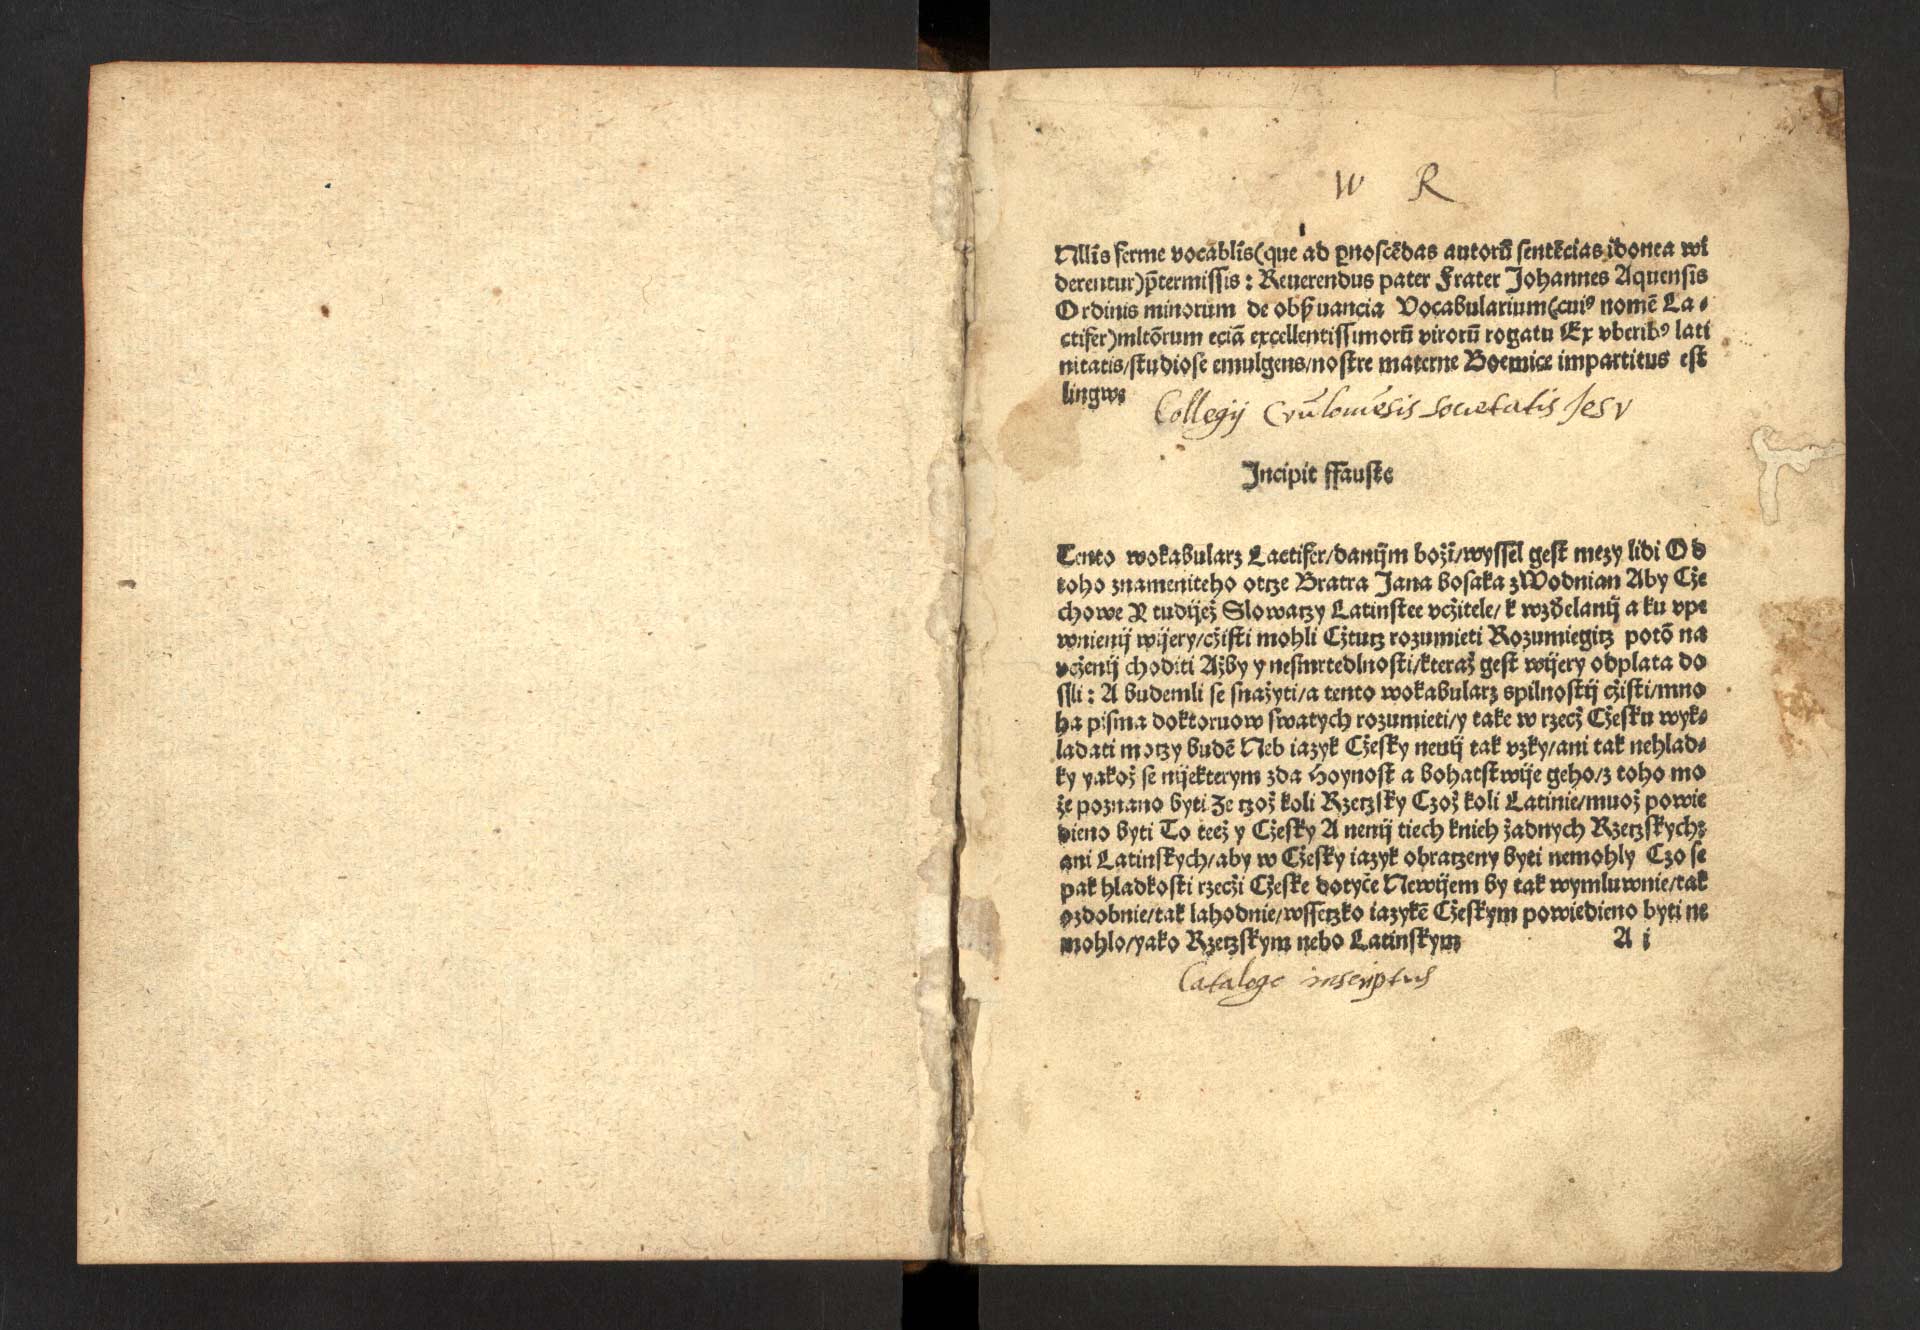 W R
Nllis ferme vocablis(que ad ꝓnoscēdas autorū sentēcias idonea wi
derentur)p̄termissis: Reuerendus pater Frater Johannes Aquensis
Ordinis minorum de obꝰuancia Vocabularium(cuiꝰ nomē La⸗
ctifer)mltōrum eciā excellentissimorū virorū rogatu Ex vberibꝰ lati
nitatis/studiose emulgens/nostre materne Boemice impartitus est
lingwe
Collegij Crūlouiēsis Societatis Jesv
Incipit ffauste
Tento wokabularz Lactifer/danijm boži/wyssel gest mezy lidi Od
toho znameniteho otcze Bratra Jana bosaka z Wodnian Aby Cže
chowe Y tudijež Slowaczy Latinstee vcžitele/k wzdelanij a ku vpe
wnienij wijery/cžisti mohli Cžtucz rozumieti Rozumiegicz potō na
vcženij choditi Ažby y nesmrtedlnosti/kteraž gest wijery odplata do
ssli: A budemli se snažyti/a tento wokabularz spilnostij cžisti/mno
ha pisma doktoruow swatych rozumieti/y take w rzecž Cžesku wyk⸗
ladati moczy budē Neb iazyk Cžesky nenij tak vzky/ani tak nehlad⸗
ky yakož se nijekterym zda Hoynost a bohatstwije geho/z toho mo
že poznano byti Ze czož koli Rzeczsky Czož koli Latinie/muož powie
dieno byti To teež y Cžesky A nenij tiech knieh žadnych Rzeczskych:
ani Latinskych/aby w Cžesky iazyk obraczeny byti nemohly Czo se
pak hladkosti rzecži Cžeske dotyče Newijem by tak wymluwnie/tak
ozdobnie/tak lahodnie/wsseczko iazykē Cžeskym powiedieno byti ne
mohlo/yako Rzeczskym nebo Latinskym
A i
Cataloge inscriptus